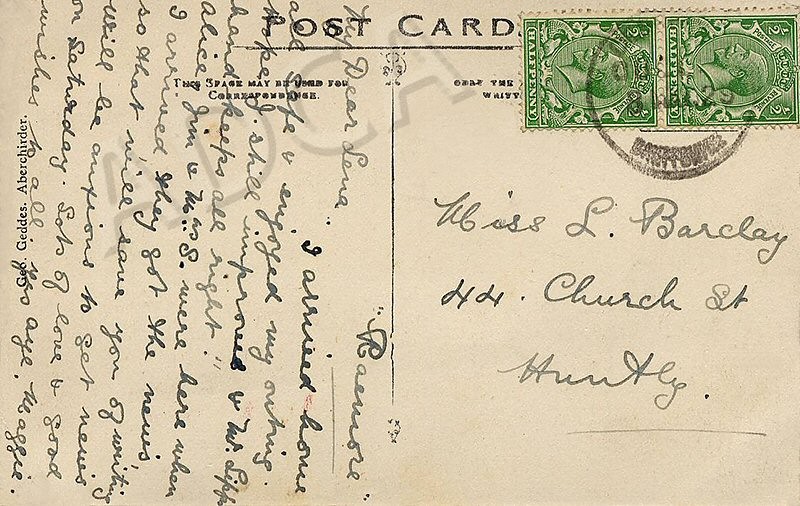 POST CARD
THIS SPACE MAY BE USED FOR
CORRESPONDENCE.
"Raemore"
My Dear Lena. I arrived home
all safe & enjoyed my outing.
Hope J. still improves & Mr. Lipp
hand keeps all right."
Alice Jim & Mrs. S. were here when
I arrived they got the news
so that will save you of writing
Will be anxious to get news
on Saturday. Lots of love & good
wishes to all. Yrs aye. Maggie.
Geo. Geddes. Aberchirder.
POSTAGE
REVENUE
HALFPENNY
½
½
POSTAGE
REVENUE
HALFPENNY
½
½
Miss L. Barclay
44. Church St
Huntly.
ADCA